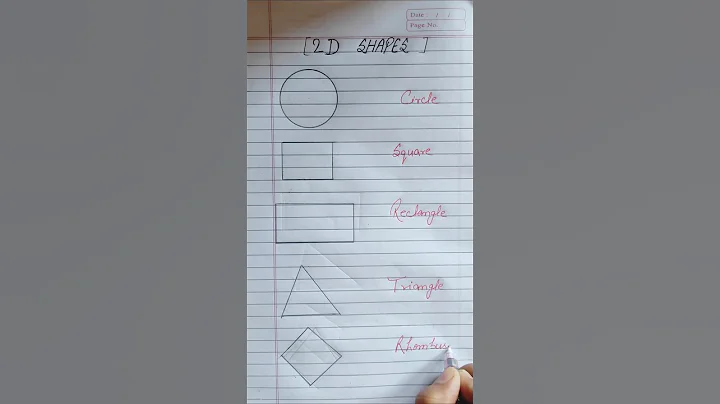 Date :
Page No.
[2D SHAPES ]
Circle
Square
Rectangle
Triangle
Rhombus